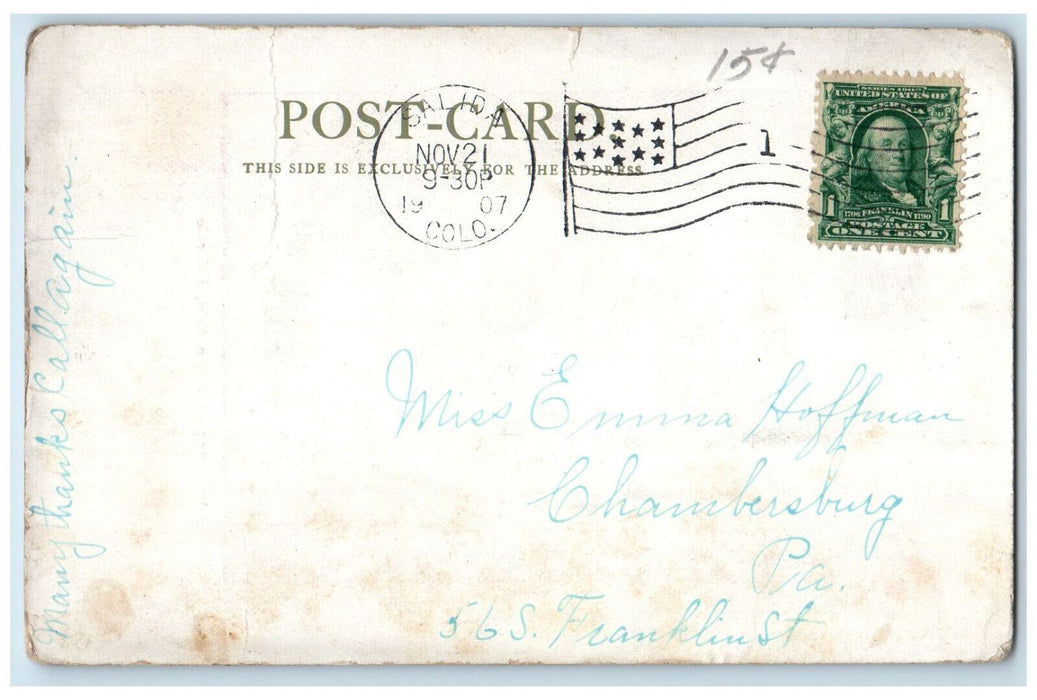 15¢
POST-CARD.
THIS SIDE IS EXCLUSIVELY FOR THE ADDRESS
SALIDA
NOV 21
9-30P
19 07
COLO.
1
SERIES 1902
UNITED STATES OF
AMERICA
1706 FRANKLIN 1790
1 POSTAGE 1
ONE CENT
Many thanks Call again.
Miss Emma Hoffman
Chambersburg
Pa.
56 S. Franklin St